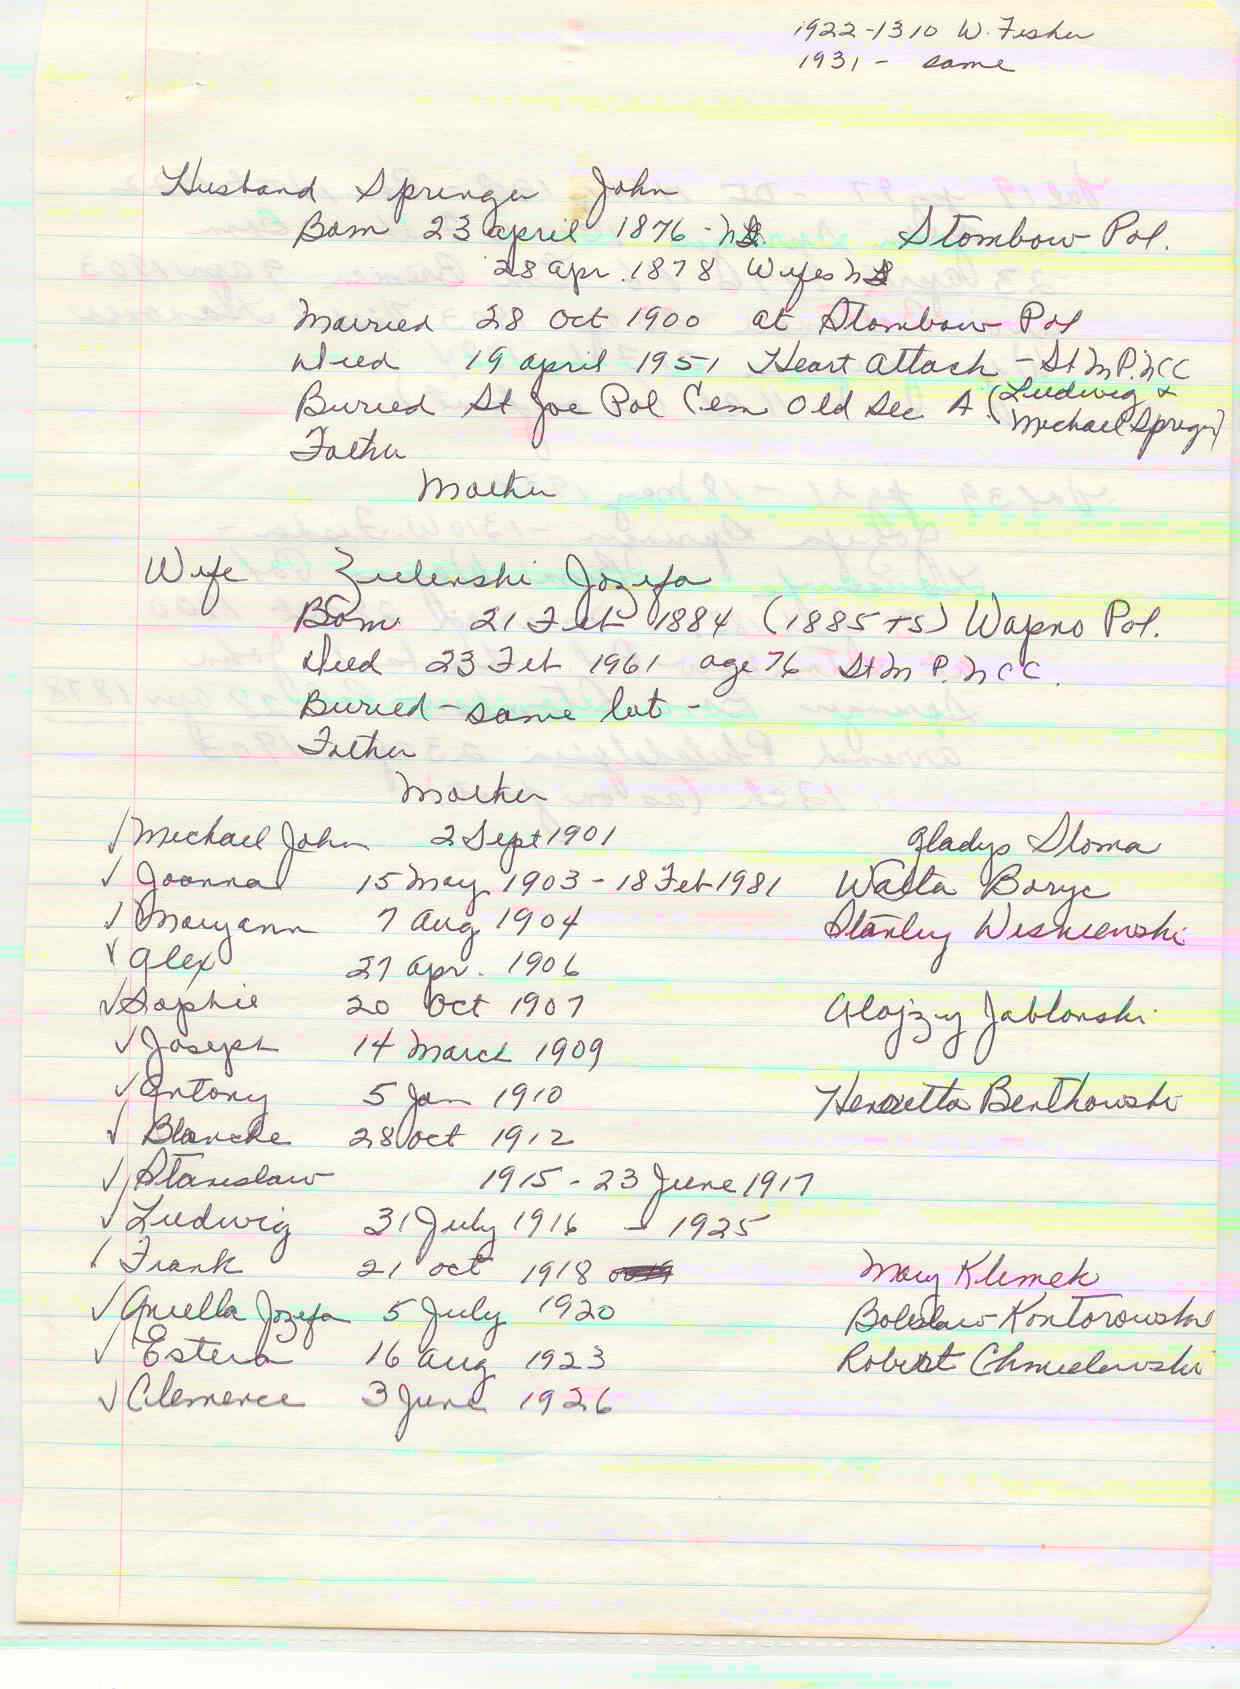 1922-1310 W. Fisher
1931 - same
Husband Springer John
Born 23 april 1876 - Stombow Pol.
28 apr. 1878 Wifes
Married 28 Oct 1900 at Stombow Pol
Died 19 april 1951 Heart attack - St M P. NCC
Buried St Joe Pol Cem Old Sec A. (Ludwig &
Michael Springer)
Father
Mother
Wife Zielenski Jozefa
Born 21 Feb 1884 (1885 TS) Wapno Pol.
Died 23 Feb 1961 age 76 St M P. N C C.
Buried - same lot -
Father
Mother
✓ Michael John 2 Sept 1901 Gladys Sloma
✓ Joanna 15 May 1903 - 18 Feb 1981 Walta Boryc
✓ Maryann 7 Aug 1904 Stanley Wisniewski
✓ Alex 27 apr. 1906
✓ Sophie 20 Oct 1907 Alojzy Jablonski
✓ Joseph 14 March 1909
✓ Antony 5 Jan 1910 Henrietta Benthowski
✓ Blanche 28 Oct 1912
✓ Stanislaw 1915 - 23 June 1917
✓ Ludwig 31 July 1916 - 1925
✓ Frank 21 Oct 1918 Mary Klimek
✓ Aniella Jozefa 5 July 1920 Boleslaw Kontorowski
✓ Estera 16 Aug 1923 Robert Chmielewski
✓ Clemence 3 June 1926